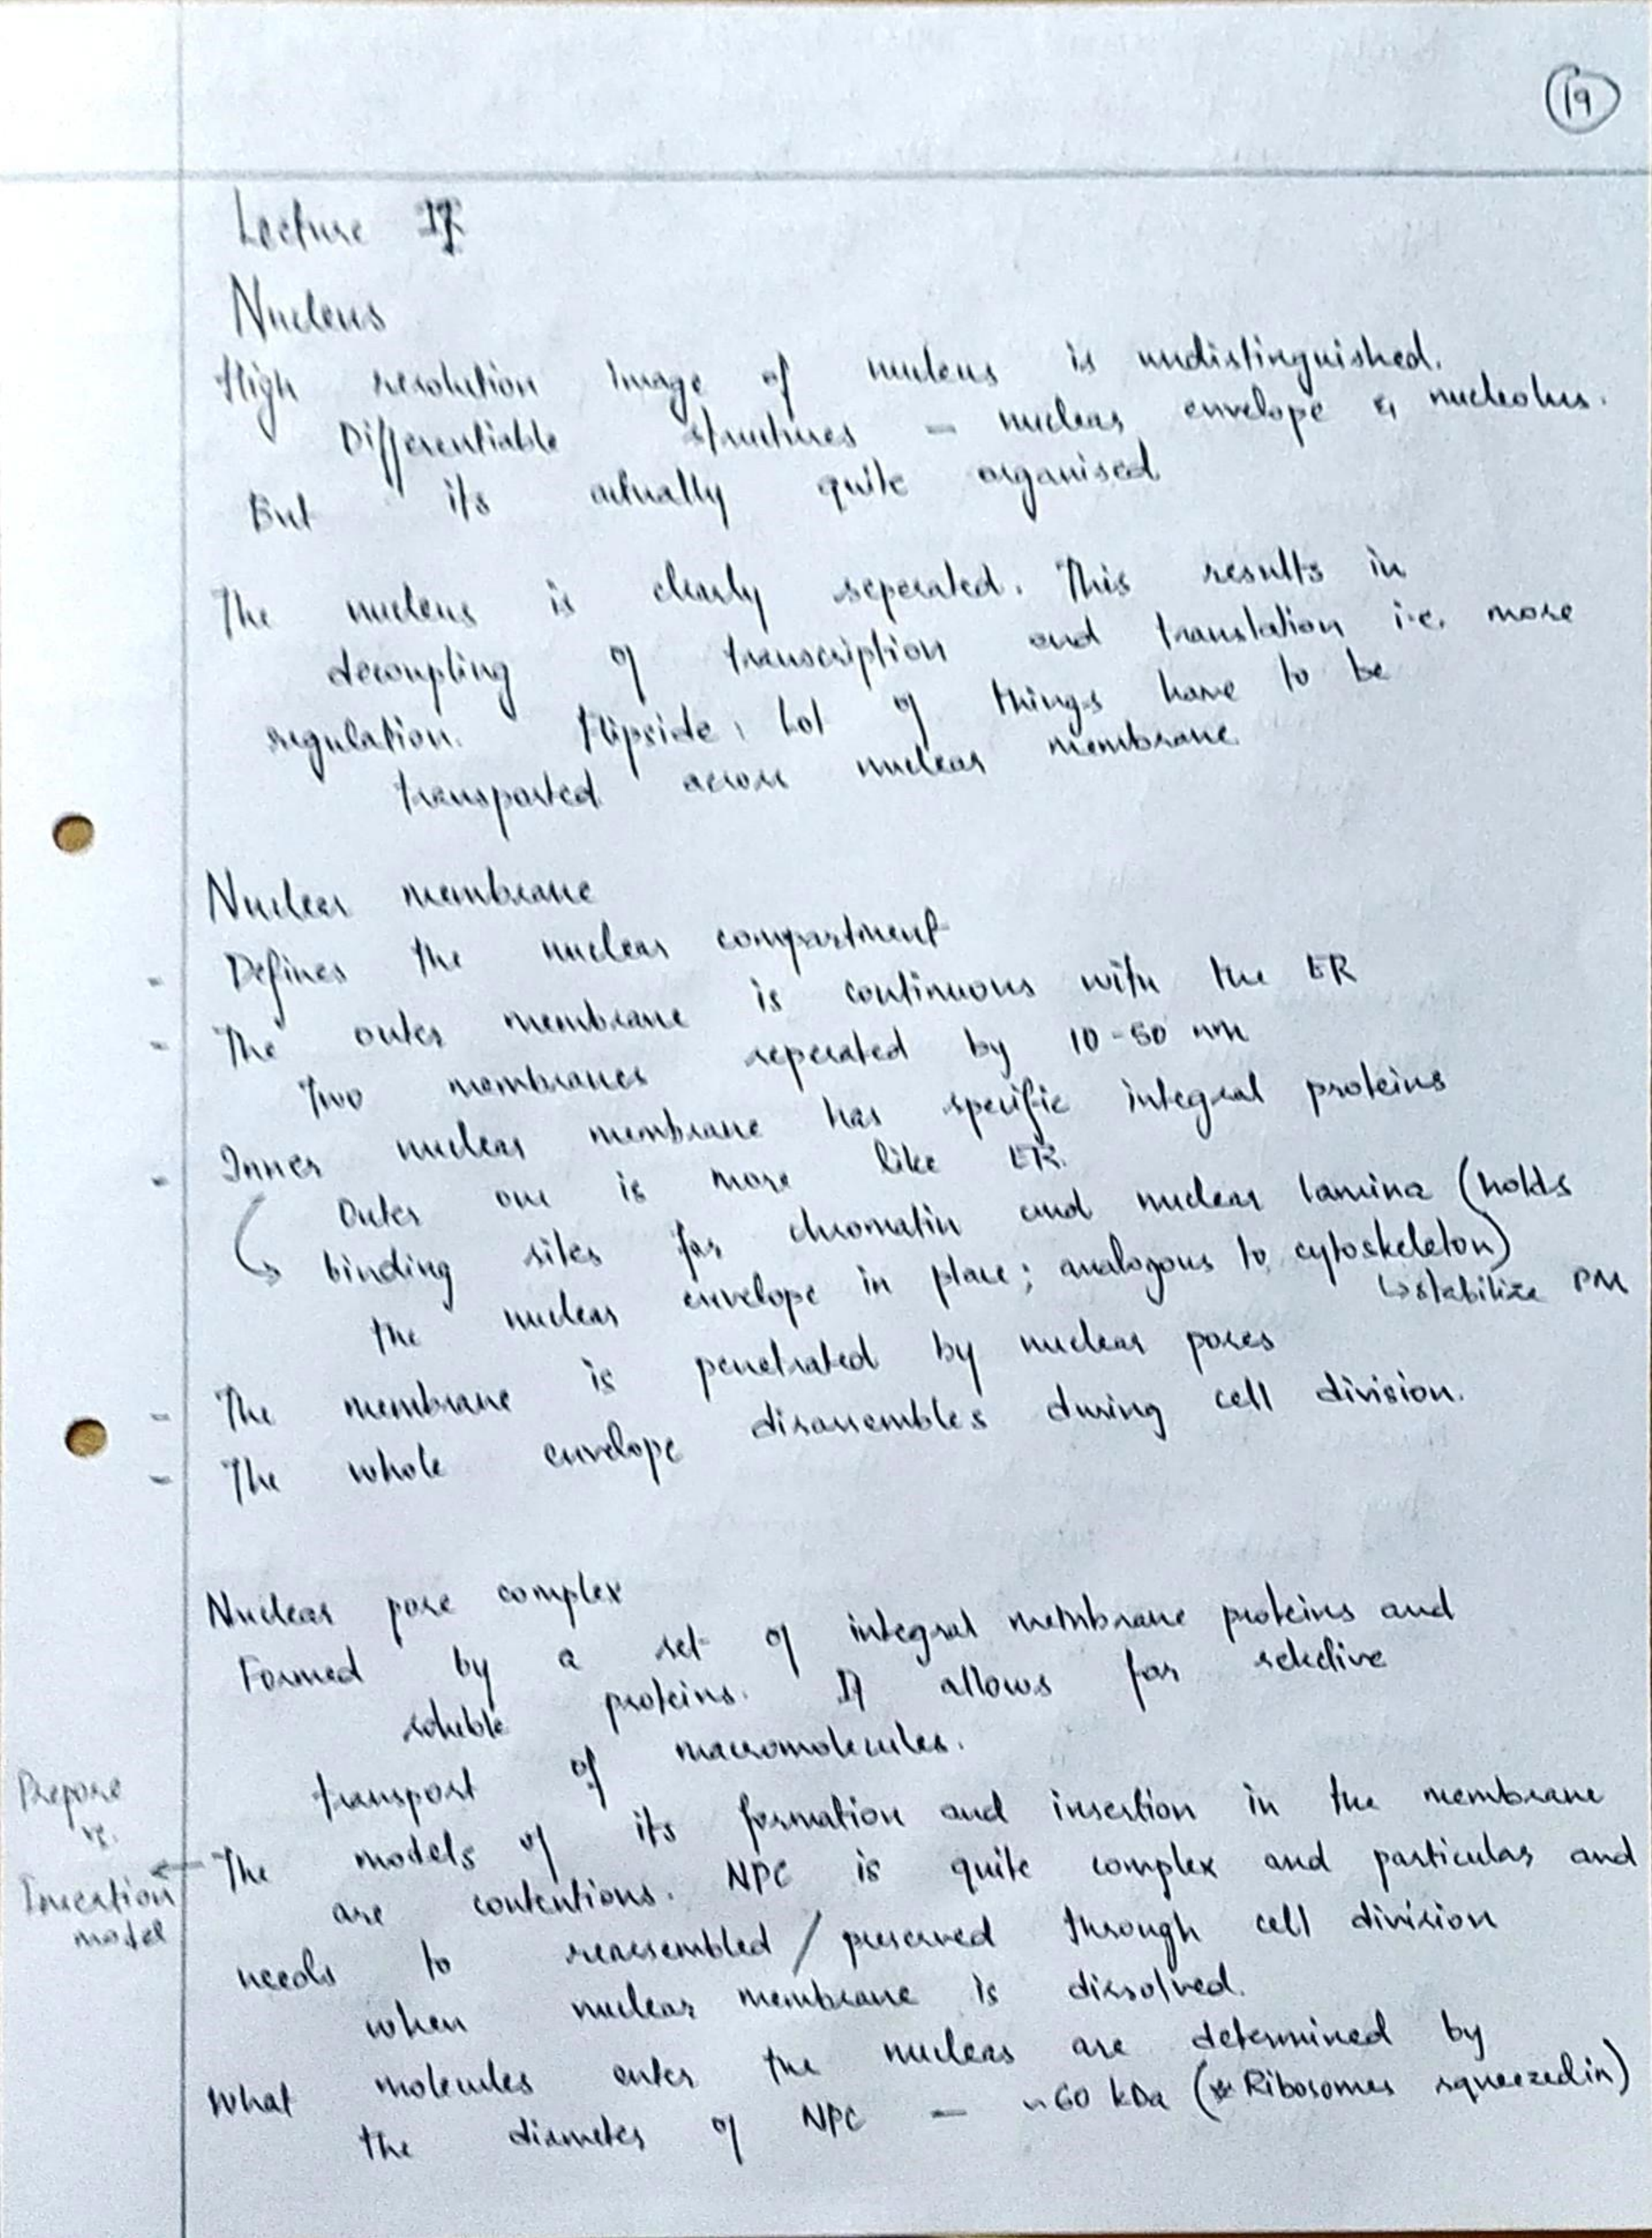 19
Lecture 17
Nucleus
High resolution image of nucleus is undistinguished.
Differentiable structures - nuclear envelope & nucleolus.
But its actually quite organised
The nucleus is clearly seperated. This results in
decoupling of transcription and translation i.e. more
regulation. Flipside: Lot of things have to be
transported across nuclear membrane
Nuclear membrane
- Defines the nuclear compartment
- The outer membrane is continuous with the ER
Two membranes seperated by 10-50 nm
- Inner nuclear membrane has specific integral proteins
Outer one is more like ER.
↳ binding sites for chromatin and nuclear lamina (holds
the nuclear envelope in place; analogous to cytoskeleton)
↳ stabilize PM
- The membrane is penetrated by nuclear pores
- The whole envelope disassembles during cell division.
Nuclear pore complex
Formed by a set of integral membrane proteins and
soluble proteins. It allows for selective
transport of macromolecules.
Prepore
vs.
Insertion
model
← The models of its formation and insertion in the membrane
are contentions. NPC is quite complex and particular and
needs to reassembled / preserved through cell division
when nuclear membrane is dissolved.
What molecules enter the nuclear are determined by
the diameter of NPC - ~60 kDa (* Ribosomes squeezed in)